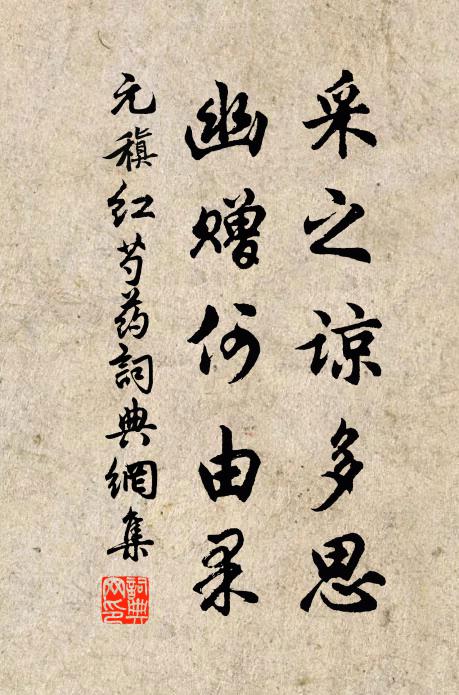 采之谅多思
幽赠何由果
元稹红芍药詞典網集
詞典网印